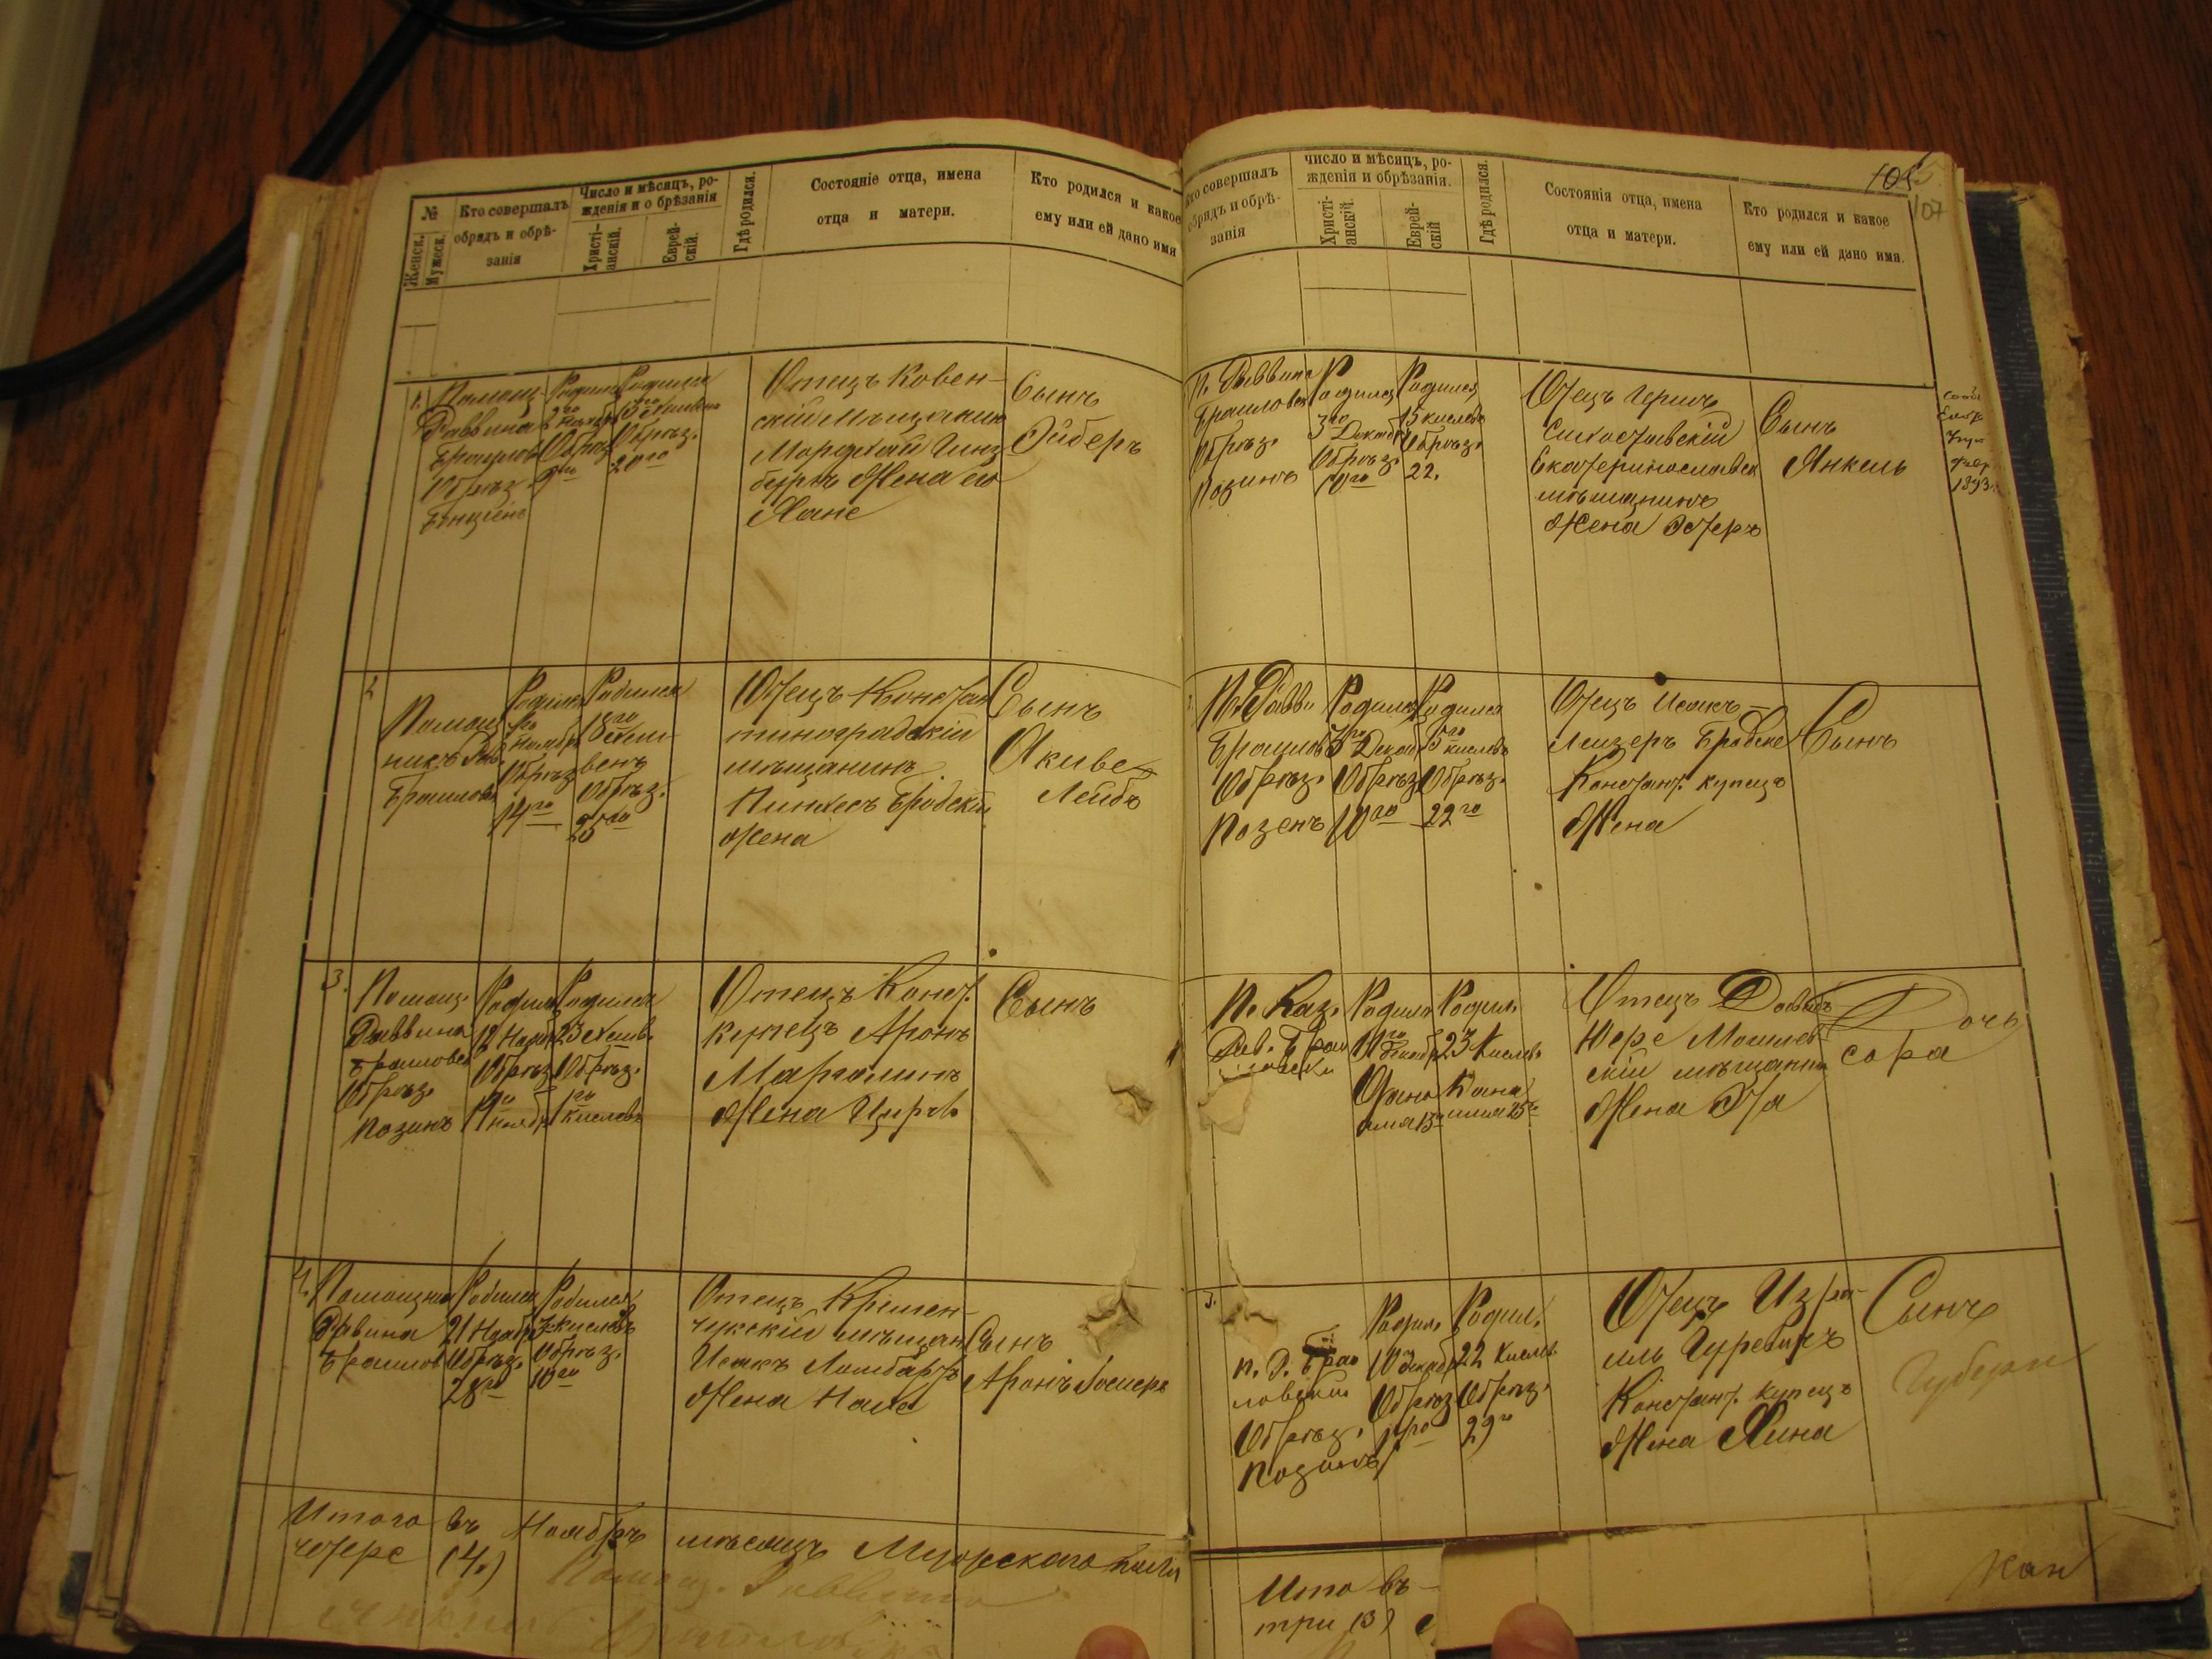 №
Женск.
Мужеск.
Кто совершалъ
обрядъ и обрѣ-
занія
Число и мѣсяцъ, ро-
жденія и о брѣзанія
Христі-
анскій.
Еврей-
скій.
Гдѣ родился.
Состояніе отца, имена
отца и матери.
Кто родился и какое
ему или ей дано имя
1.
Помощ.
Раввина
Обрѣз.
Родился
2го Ноябр
Обрѣз.
9го
Родился
Обрѣз.
20го
Отецъ Ковен-
скій Мѣщанинъ
Мордхай Гинз-
бургъ Жена его
Хане
Сынъ
Эйберъ
2
Помощ
никъ Рав.
Браилов
Родился
7го
Ноябр
Обрѣз
14го
Родился
18го
Обрѣз.
25го
Отецъ Констан
тиноградскій
мѣщанинъ
Пинхесъ Бродскій
Жена
Сынъ
Акиве
Лейбъ
3.
Помощ.
Раввина
Браиловск
Обрѣз.
Позинъ
Родил
12 Ноябр
Обрѣз
19го
ноябр
Родился
23 Хешв.
Обрѣз.
1го
кислевъ
Отецъ Конст.
купецъ Аронъ
Марголинъ
Жена Цирль
Сынъ
4.
Помощник
Равина
Браилов
Родился
21 Ноябр
Обрѣз.
28го
Родился
3 кислевъ
Обрѣз.
10го
Отецъ Кремен-
чукскій мѣщан
Исакъ Ломбардъ
Жена
Сынъ
Аронъ
Итого въ Ноябрѣ мѣсяцѣ Мужескаго пола
четере (4.)
Помощ. Раввина
Кто совершалъ
обрядъ и обрѣ-
занія
число и мѣсяцъ, ро-
жденія и обрѣзанія.
Христі-
анскій.
Еврей-
скій
Гдѣ родился.
Состоянія отца, имена
отца и матери.
Кто родился и какое
ему или ей дано имя.
105
107
П. Раввина
Браиловск
Обрѣз.
Позинъ
Родился
3го Декабр
Обрѣз.
10го
Родился
15 кислевъ
Обрѣз.
22.
Отецъ Гершъ
Екатеринославск
мѣщанинъ
Жена Эстеръ
Сынъ
Янкель
1893
П. Равви
Браилов
Обрѣз.
Позенъ
Родился
3го Декаб
Обрѣз
10го
Родился
15го
кислевъ
Обрѣз.
22го
Отецъ Исакъ-
Лейзеръ Бродске
Констант. купецъ
Жена
Сынъ
1
П. Каз.
Рав. Браи
ловски
Родил
11го
декабр
Дано
имя 13го
Родил.
23 Кислев.
Дана
имя 25го
Отецъ Давидъ
мѣщанин
Жена Эта
Дочь
Сора
3.
п. Р. Браи
ловски
Обрѣз.
Позинъ
Родил.
10го декаб
Обрѣз
17го
Родил.
22 Кислев
Обрѣз.
29го
Отецъ Изра-
иль Гуревичъ
Констант. купецъ
Жена Хина
Сынъ
Ито въ
три (3)